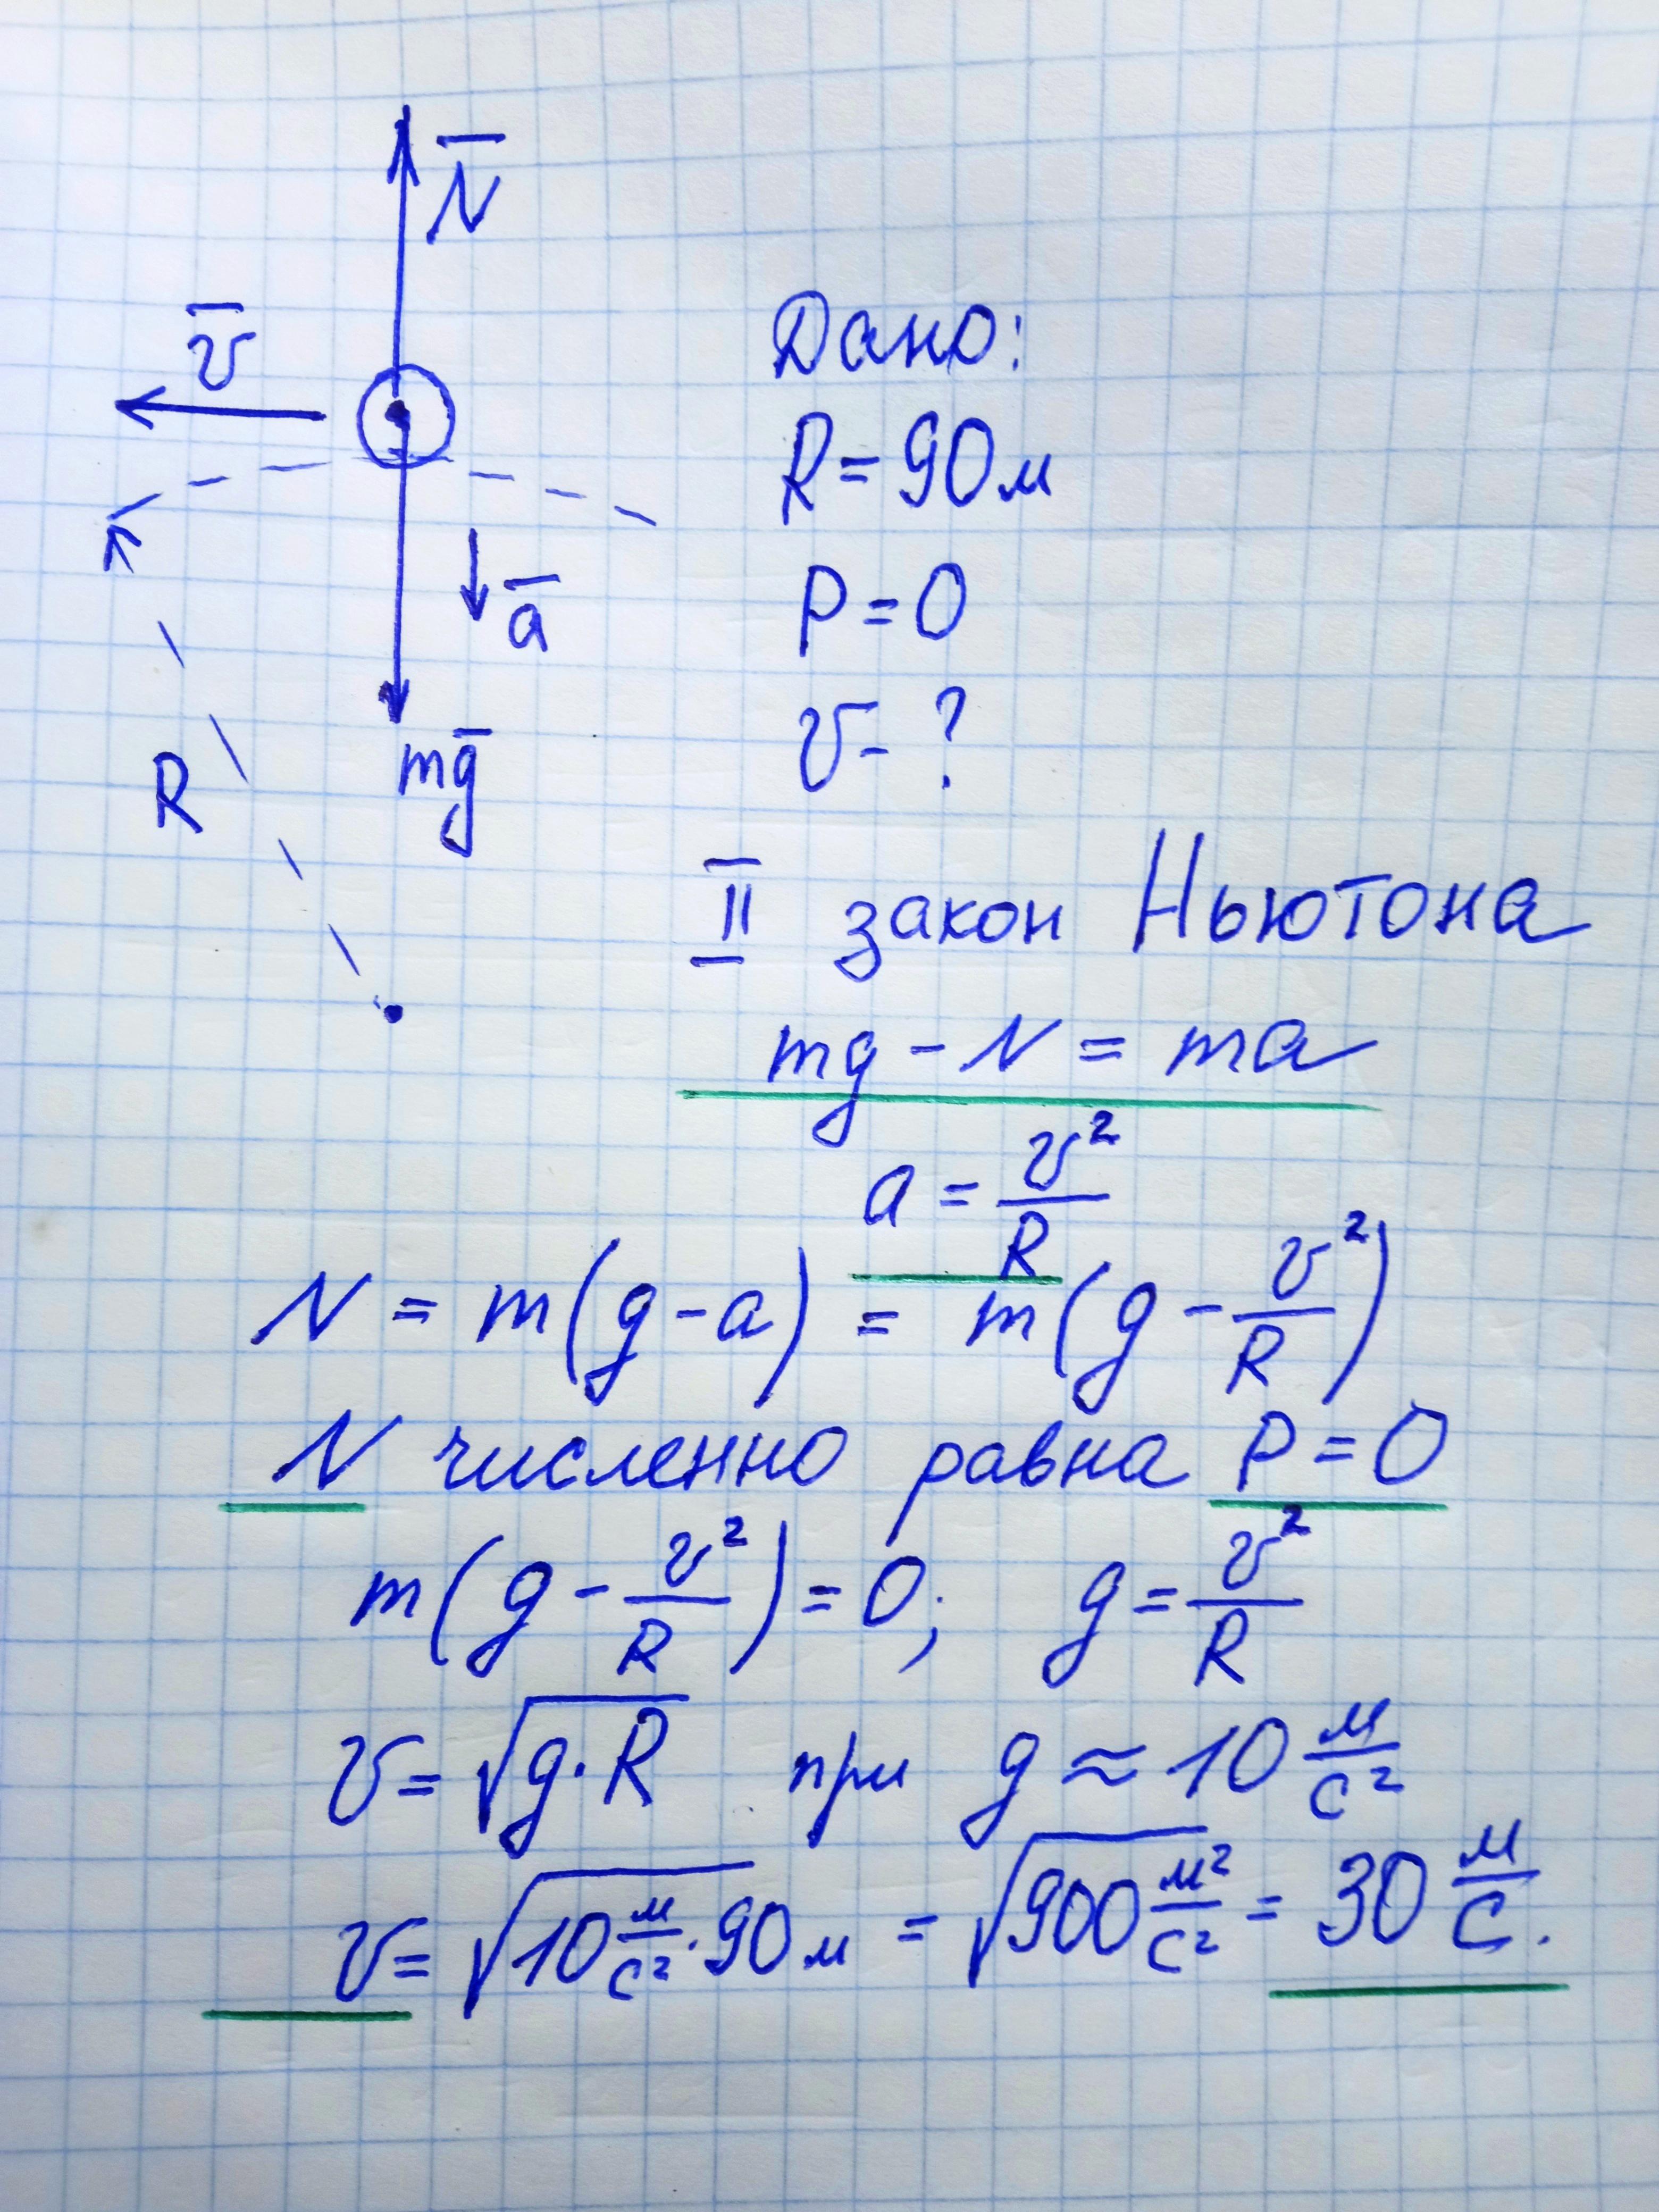 N̅
v̅
Дано:
R = 90 м
P = 0
v - ?
a̅
mg̅
R
II закон Ньютона
mg - N = ma
a = v²/R
N = m(g - a) = m(g - v²/R)
N численно равна P = 0
m(g - v²/R) = 0; g = v²/R
v = √g·R при g ≈ 10 м/с²
v = √10 м/с² · 90 м = √900 м²/с² = 30 м/с.